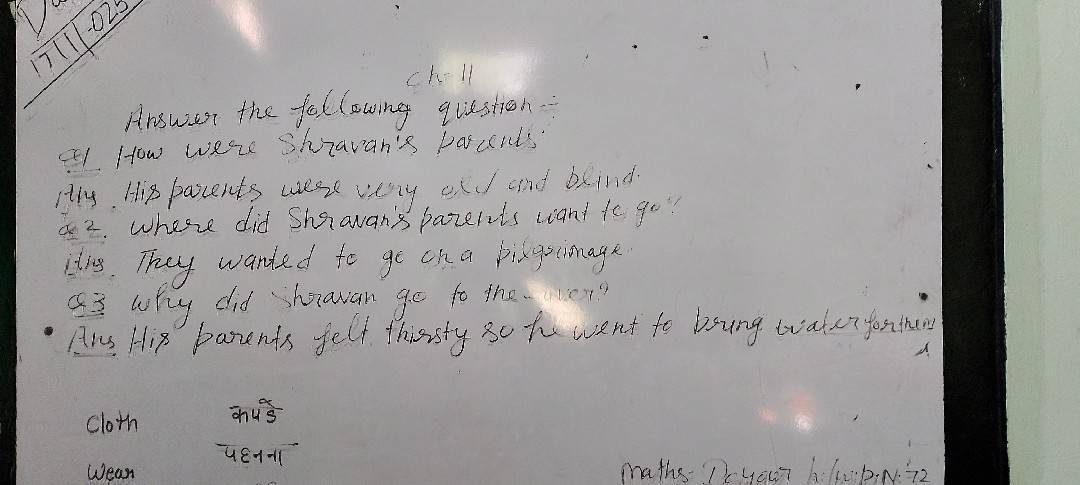 17/11-025
Ch-11
Answer the following question :-
Q1 How were Shravan's parents
Ans. His parents were very old and blind.
Q2. Where did Shravan's parents want to go?
Ans. They wanted to go on a pilgrimage.
Q3 Why did Shravan go to the river?
Ans His parents felt thirsty so he went to bring water for them
Cloth कपडे
Wear पहनना
Maths- P.N. 72